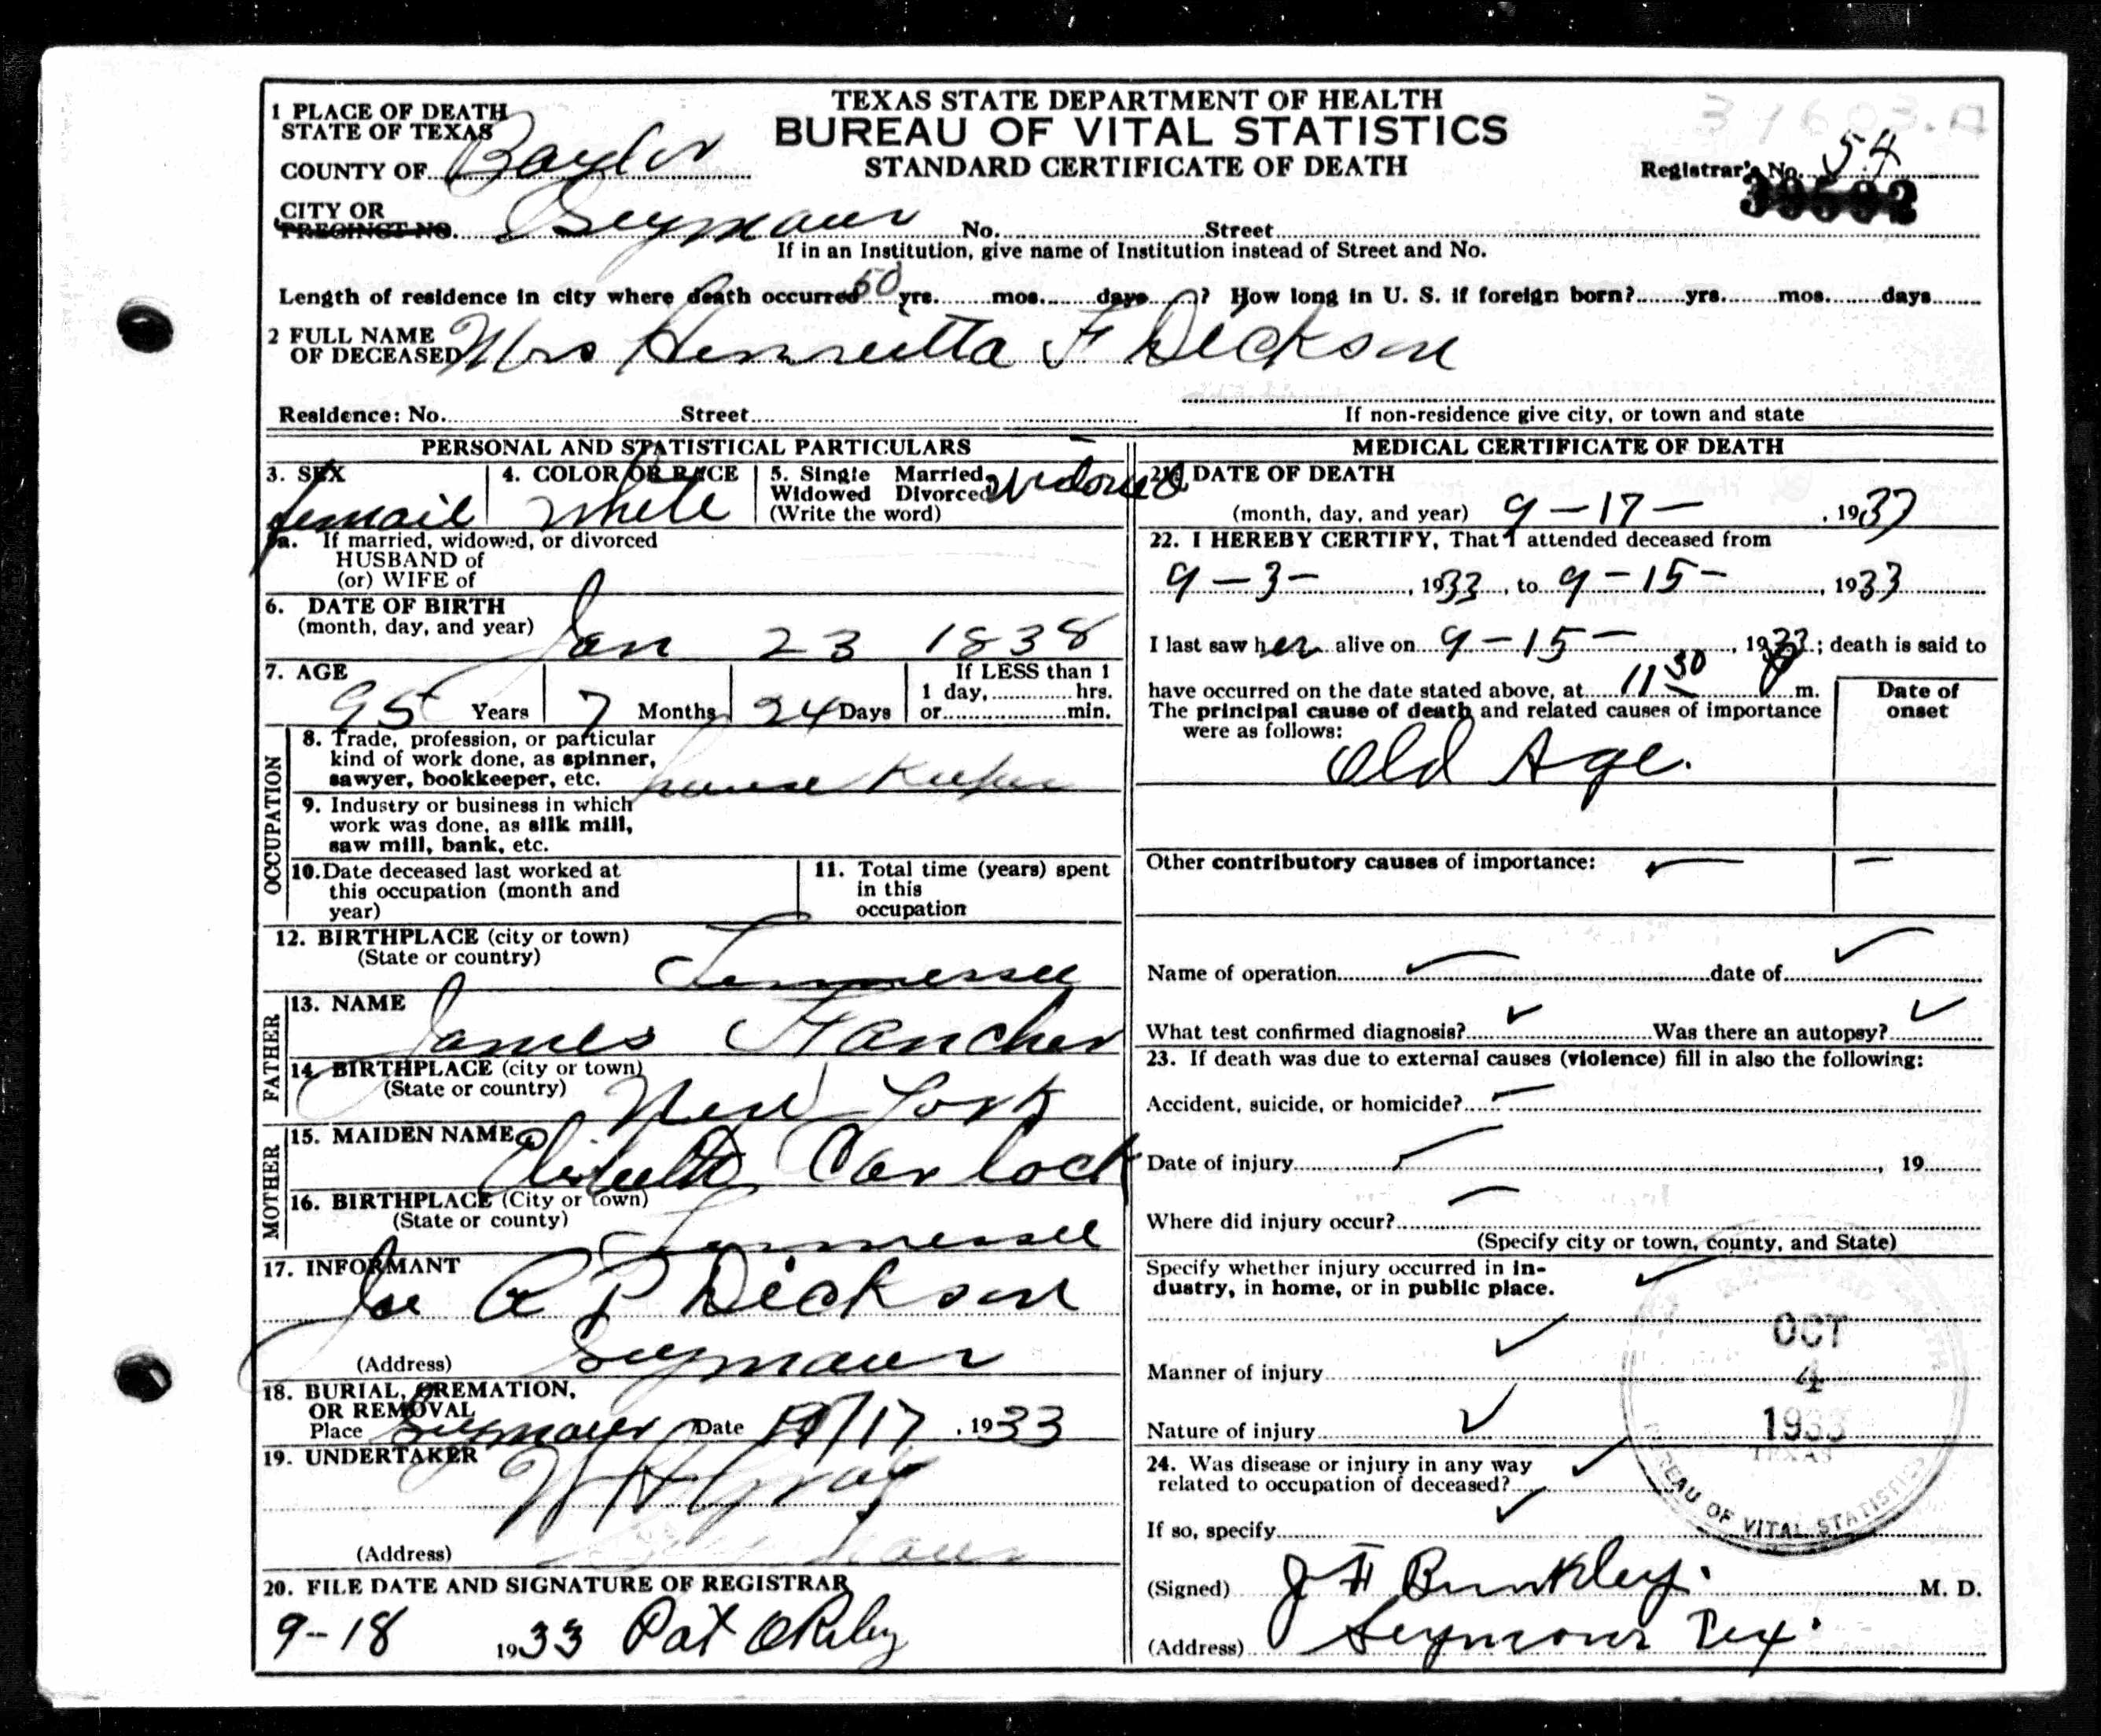 TEXAS STATE DEPARTMENT OF HEALTH
BUREAU OF VITAL STATISTICS
STANDARD CERTIFICATE OF DEATH
1 PLACE OF DEATH
STATE OF TEXAS
COUNTY OF Baylor
Registrar's No. 54
CITY OR
PRECINCT NO. Seymour No. Street
If in an Institution, give name of Institution instead of Street and No.
Length of residence in city where death occurred 50 yrs. mos. days ? How long in U. S. if foreign born? yrs. mos. days
2 FULL NAME
OF DECEASED Mrs Henrietta F Dickson
Residence: No. Street
If non-residence give city, or town and state
PERSONAL AND STATISTICAL PARTICULARS
3. SEX femail
4. COLOR OR RACE White
5. Single Married
Widowed Divorced Widowed
(Write the word)
5a. If married, widowed, or divorced
HUSBAND of
(or) WIFE of
6. DATE OF BIRTH
(month, day, and year) Jan 23 1838
7. AGE
95 Years 7 Months 24 Days
If LESS than 1
1 day, hrs.
or min.
OCCUPATION
8. Trade, profession, or particular
kind of work done, as spinner,
sawyer, bookkeeper, etc. house Keeper
9. Industry or business in which
work was done, as silk mill,
saw mill, bank, etc.
10. Date deceased last worked at
this occupation (month and
year)
11. Total time (years) spent
in this
occupation
12. BIRTHPLACE (city or town)
(State or country) Tennessee
FATHER
13. NAME
James Fancher
14. BIRTHPLACE (city or town)
(State or country) New York
MOTHER
15. MAIDEN NAME Carlock
16. BIRTHPLACE (City or town)
(State or county) Tennessee
17. INFORMANT
Joe A P Dickson
(Address) Seymour
18. BURIAL, CREMATION,
OR REMOVAL
Place Seymour Date /17, 1933
19. UNDERTAKER
W H Gray
(Address)
20. FILE DATE AND SIGNATURE OF REGISTRAR
9-18 1933 Pat
MEDICAL CERTIFICATE OF DEATH
21. DATE OF DEATH
(month, day, and year) 9-17-, 1933
22. I HEREBY CERTIFY, That I attended deceased from
9-3-, 1933, to 9-15-, 1933
I last saw her alive on 9-15-, 1933; death is said to
have occurred on the date stated above, at 11 30 P m.
The principal cause of death and related causes of importance
were as follows:
Date of
onset
Old Age.
Other contributory causes of importance:
Name of operation date of
What test confirmed diagnosis? Was there an autopsy?
23. If death was due to external causes (violence) fill in also the following:
Accident, suicide, or homicide?
Date of injury , 19
Where did injury occur?
(Specify city or town, county, and State)
Specify whether injury occurred in in-
dustry, in home, or in public place.
Manner of injury
Nature of injury
24. Was disease or injury in any way
related to occupation of deceased?
If so, specify
(Signed) J F Bunkley. M. D.
(Address) Seymour Tex.
OCT
4
1933
TEXAS
BUREAU OF VITAL STATISTICS